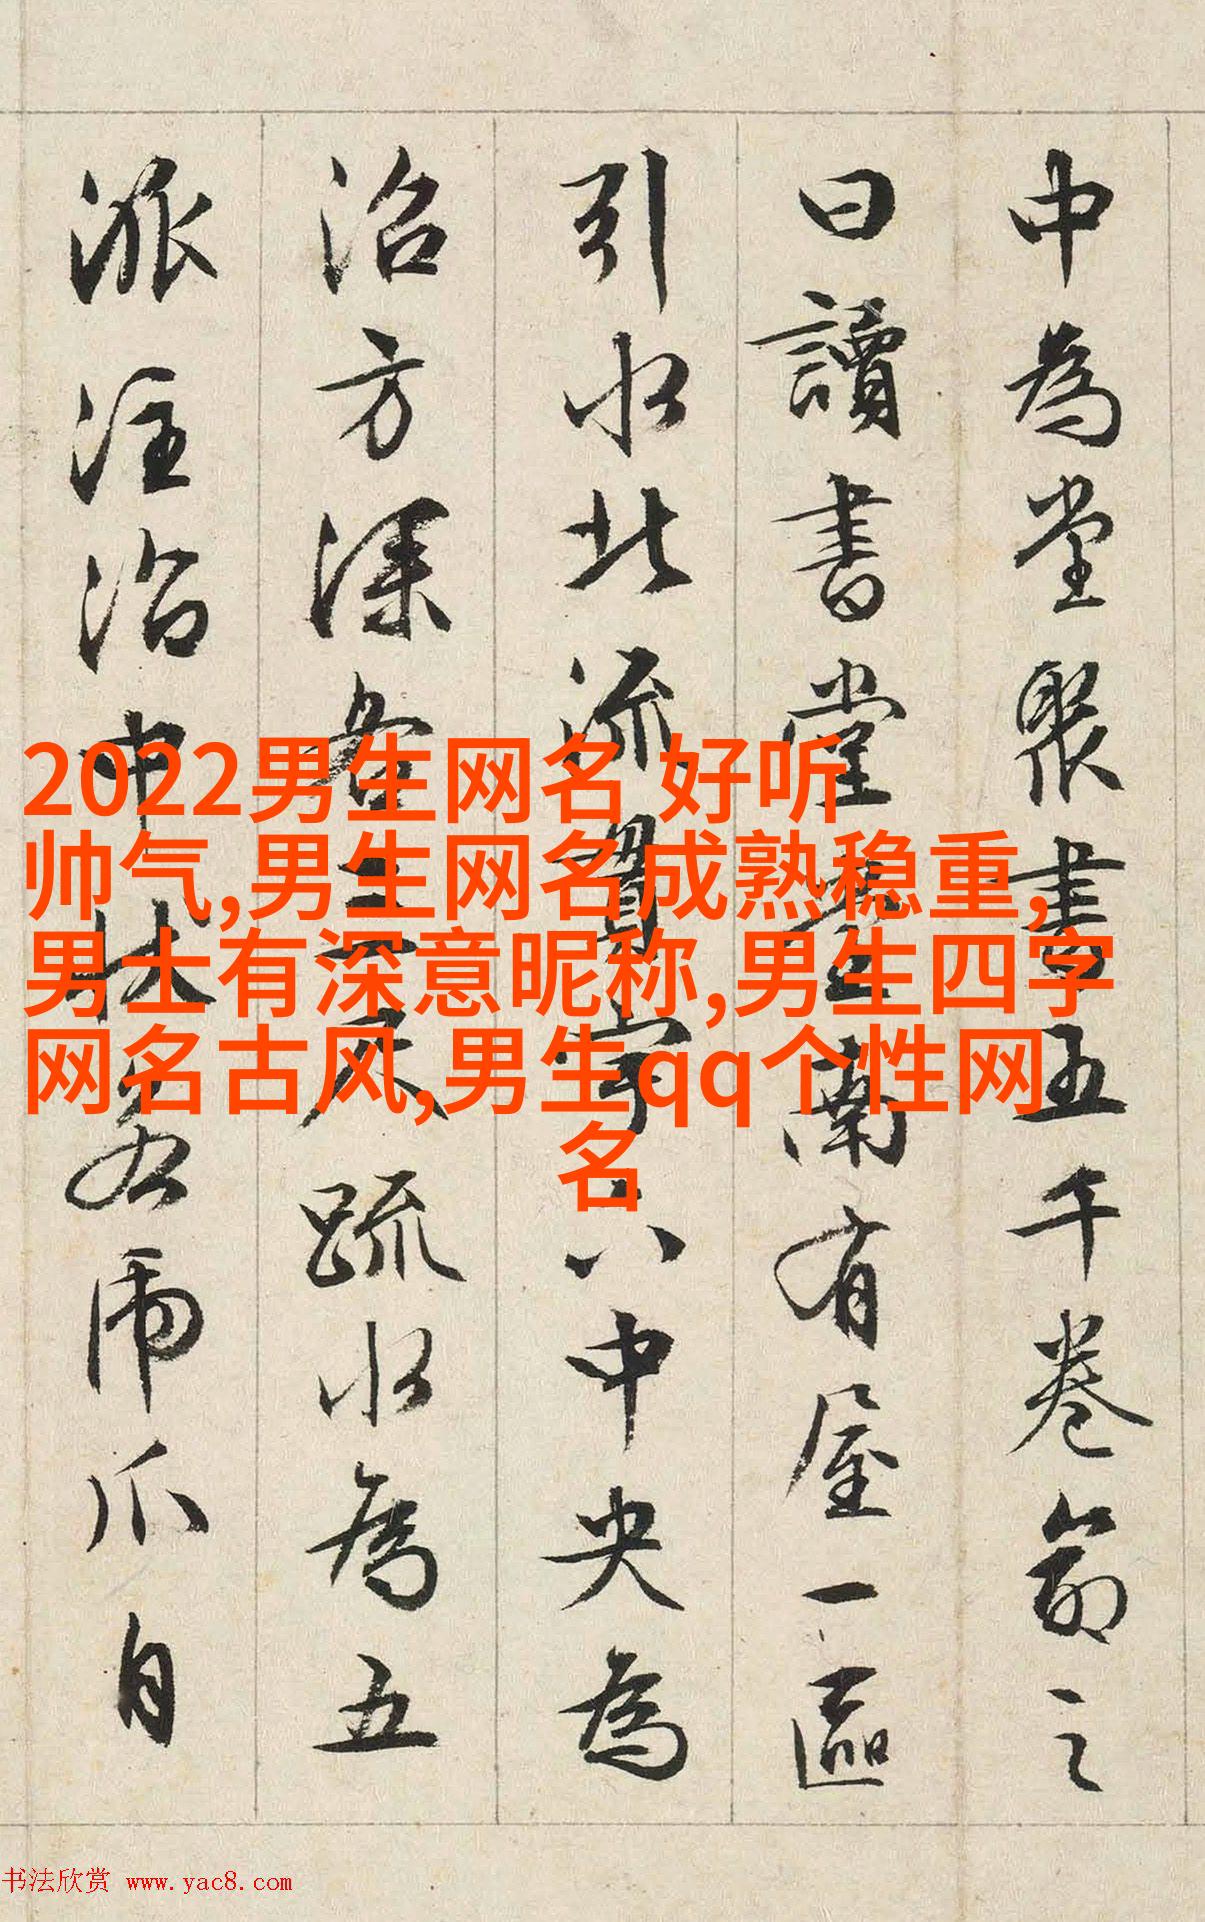 中為堂聚書五千卷命之
曰讀書堂堂南有屋一區
引水北流貫宇下中央為
沼方深各三尺疏水為五
派注沼中狀若虎爪自
2022男生网名 好听
帅气,男生网名成熟稳重,
男士有深意昵称,男生四字
网名古风,男生qq个性网
名
书法欣赏 www.yac8.com